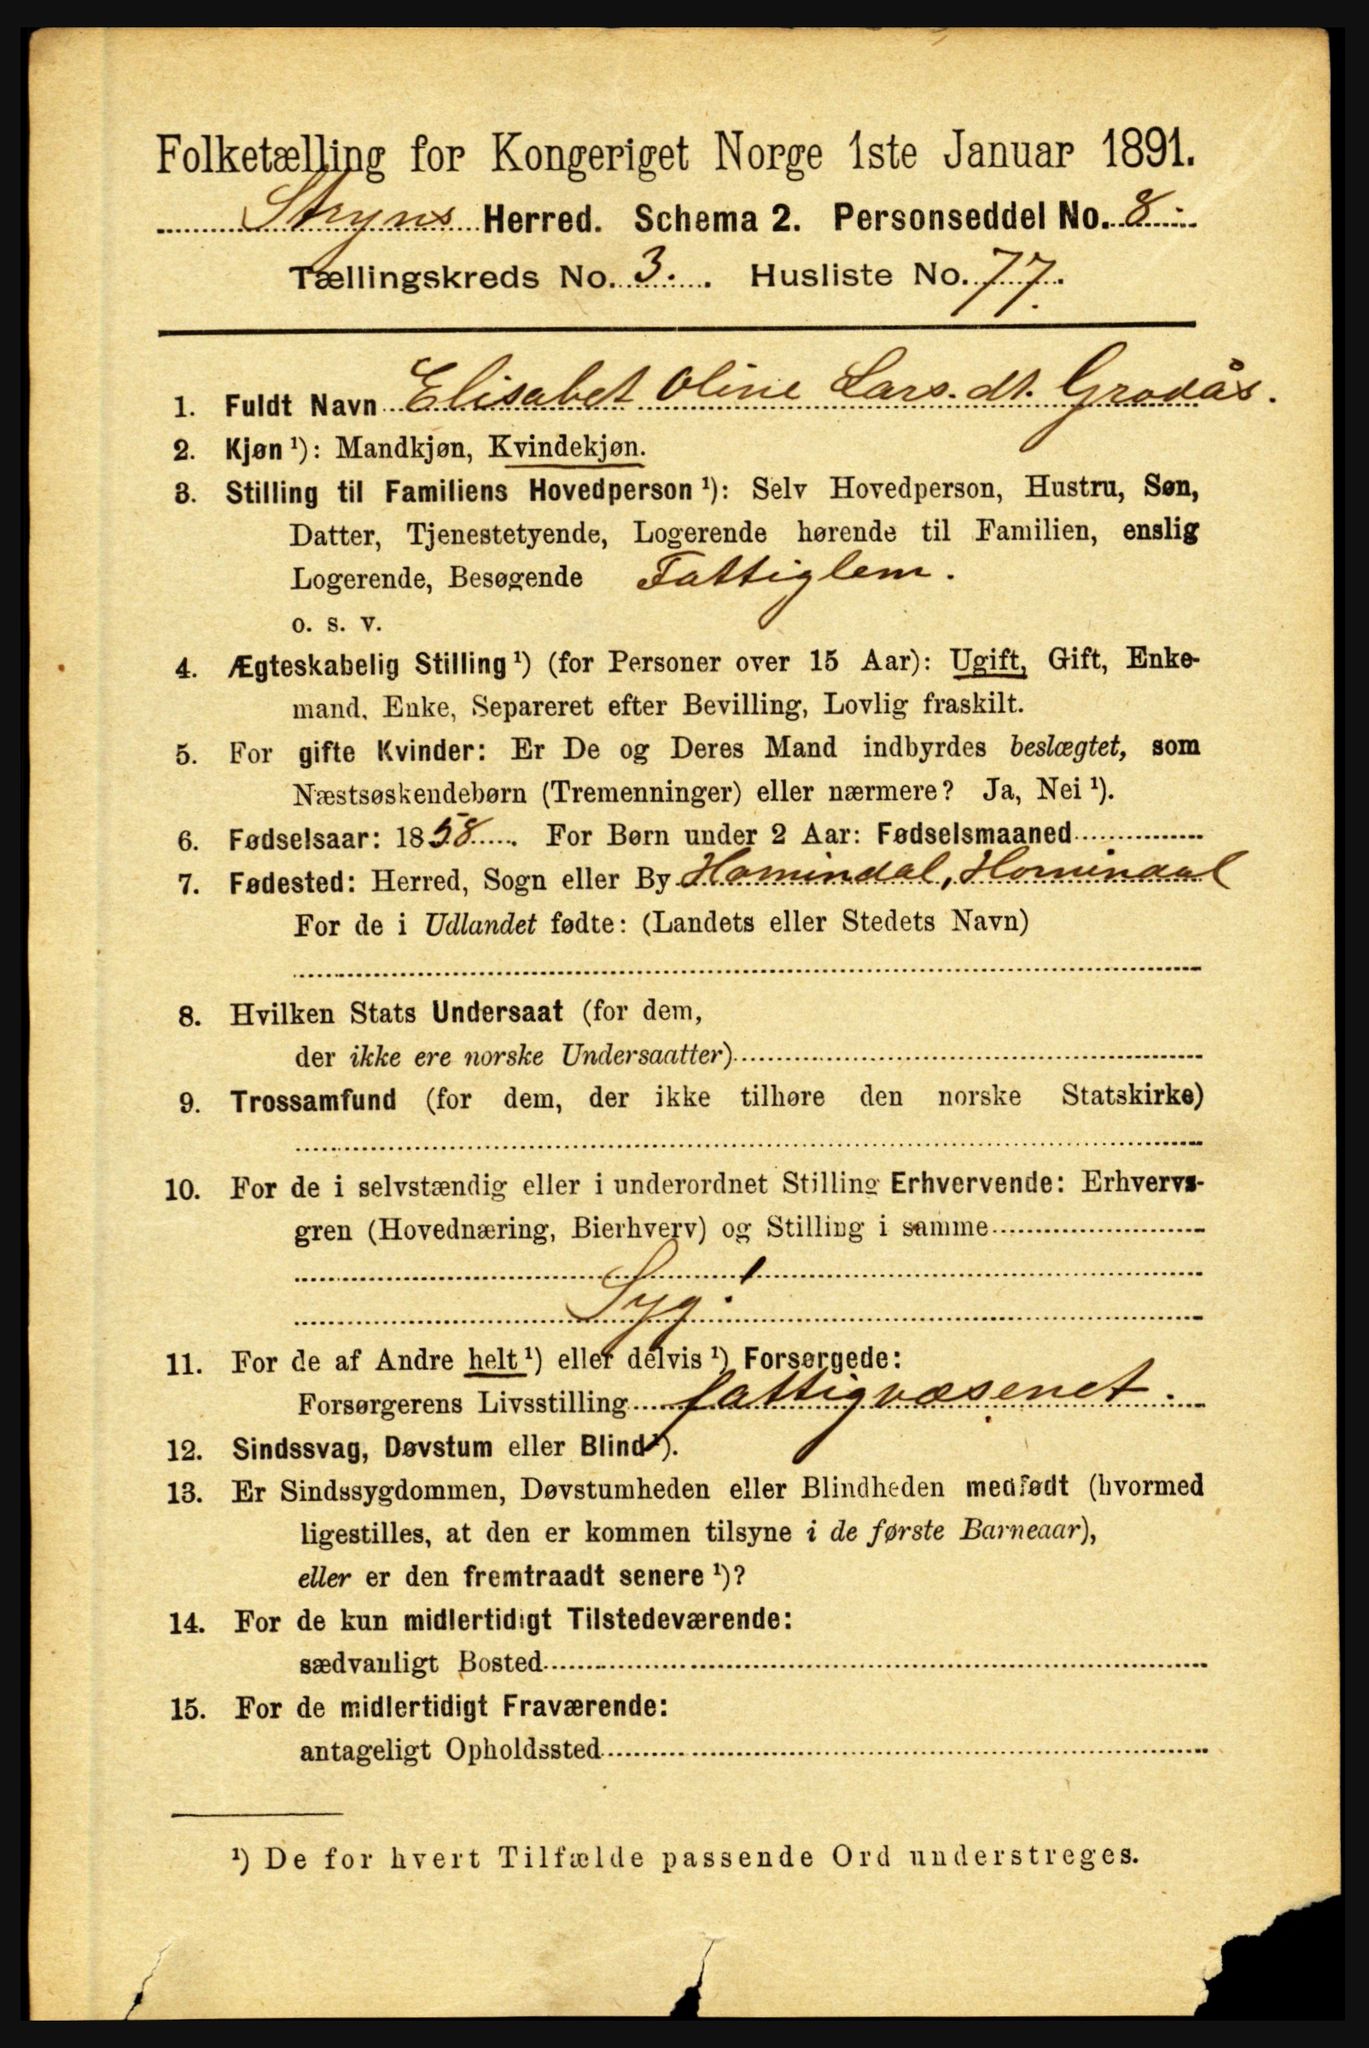 Folketælling for Kongeriget Norge 1ste Januar 1891.
Stryns Herred. Schema 2. Personseddel No. 8.
Tællingskreds No. 3. Husliste No. 77.
1. Fuldt Navn Elisabet Oline Lars.dt. Grodås.
2. Kjøn ¹): Mandkjøn, Kvindekjøn.
3. Stilling til Familiens Hovedperson ¹): Selv Hovedperson, Hustru, Søn,
Datter, Tjenestetyende, Logerende hørende til Familien, enslig
Logerende, Besøgende Fattiglem.
o. s. v.
4. Ægteskabelig Stilling ¹) (for Personer over 15 Aar): Ugift, Gift, Enke-
mand, Enke, Separeret efter Bevilling, Lovlig fraskilt.
5. For gifte Kvinder: Er De og Deres Mand indbyrdes beslægtet, som
Næstsøskendebørn (Tremenninger) eller nærmere? Ja, Nei ¹).
6. Fødselsaar: 1858. For Børn under 2 Aar: Fødselsmaaned
7. Fødested: Herred, Sogn eller By Hornindal, Hornindal
For de i Udlandet fødte: (Landets eller Stedets Navn)
8. Hvilken Stats Undersaat (for dem,
der ikke ere norske Undersaatter)
9. Trossamfund (for dem, der ikke tilhøre den norske Statskirke)
10. For de i selvstændig eller i underordnet Stilling Erhvervende: Erhvervs-
gren (Hovednæring, Bierhverv) og Stilling i samme
Syg!
11. For de af Andre helt ¹) eller delvis ¹) Forsørgede:
Forsørgerens Livsstilling fattigvæsenet.
12. Sindssvag, Døvstum eller Blind ¹).
13. Er Sindssygdommen, Døvstumheden eller Blindheden medfødt (hvormed
ligestilles, at den er kommen tilsyne i de første Barneaar),
eller er den fremtraadt senere ¹)?
14. For de kun midlertidigt Tilstedeværende:
sædvanligt Bosted
15. For de midlertidigt Fraværende:
antageligt Opholdssted
¹) De for hvert Tilfælde passende Ord understreges.